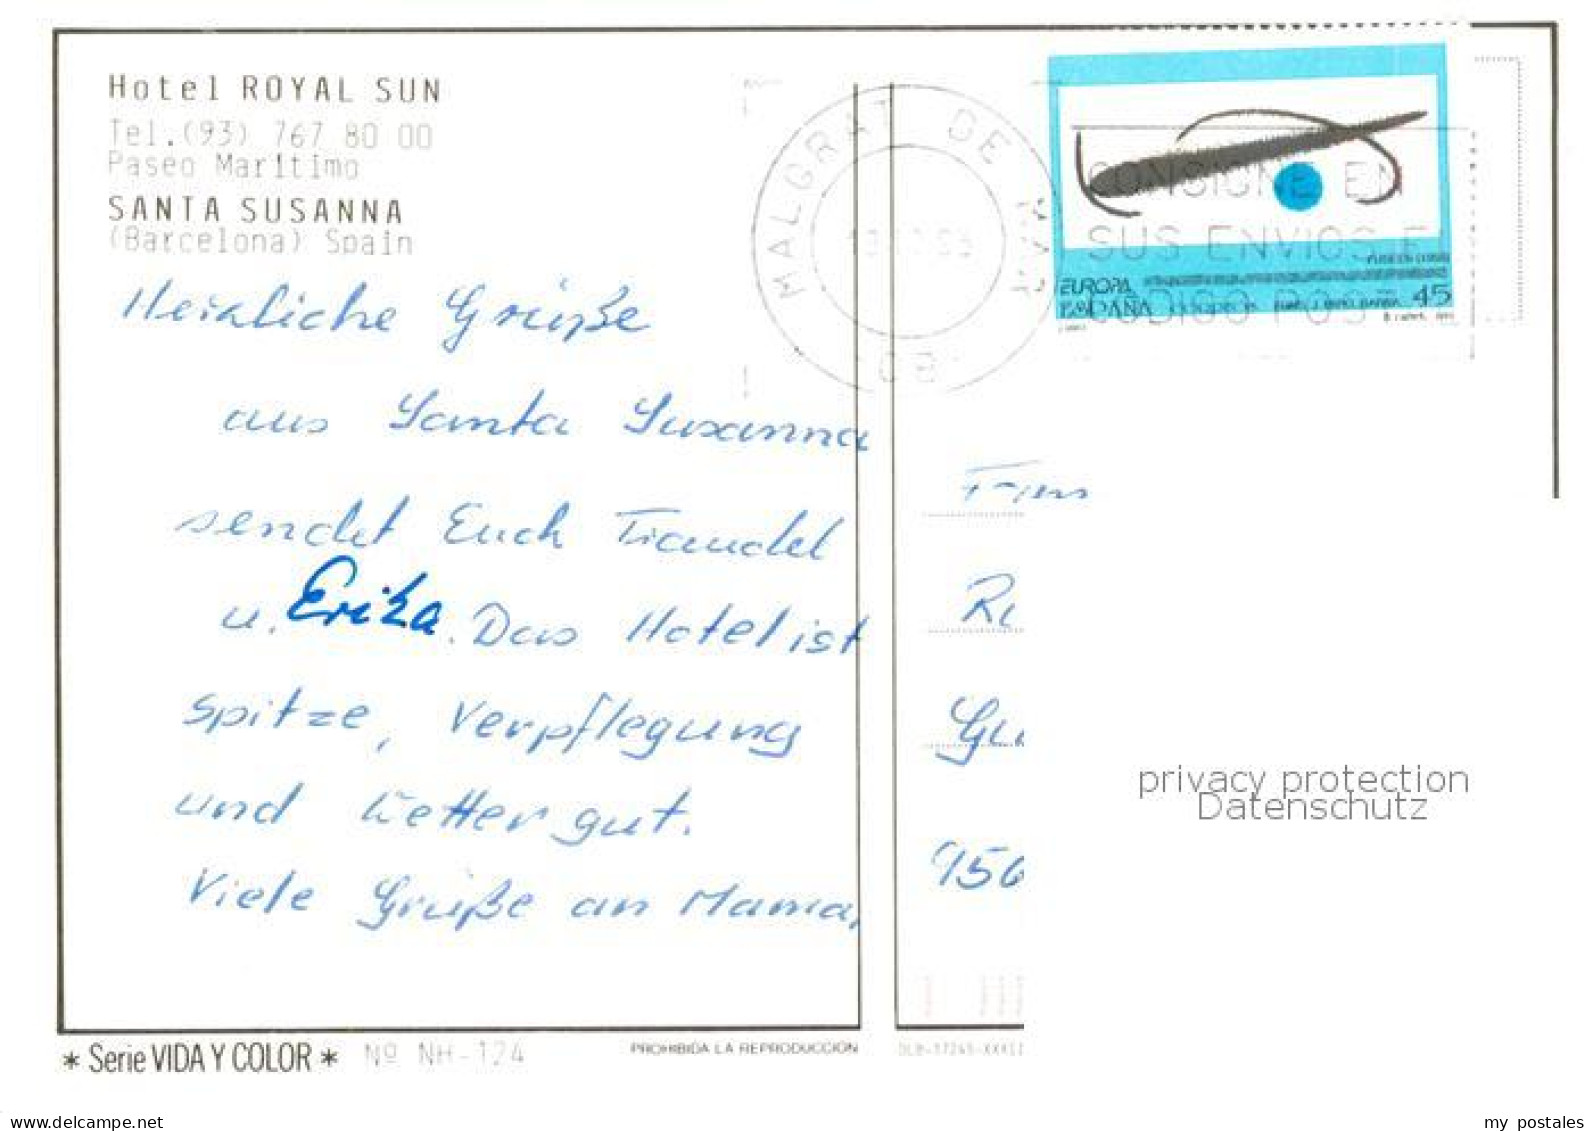 Hotel ROYAL SUN
Tel.(93) 767 80 00
Paseo Maritimo
SANTA SUSANNA
(Barcelona) Spain
Herzliche Grüße
aus Santa Susanna
sendet Euch Traudel
u. Erika. Das Hotel ist
spitze, Verpflegung
und Wetter gut.
Viele Grüße an Mama,
* Serie VIDA Y COLOR * Nº NH-124
PROHIBIDA LA REPRODUCCION
MALGRAT DE MAR
CONSIGNE EN
SUS ENVIOS E
CODIGO POST
EUROPA
ESPAÑA 45
956
privacy protection
Datenschutz
www.delcampe.net
my_postales